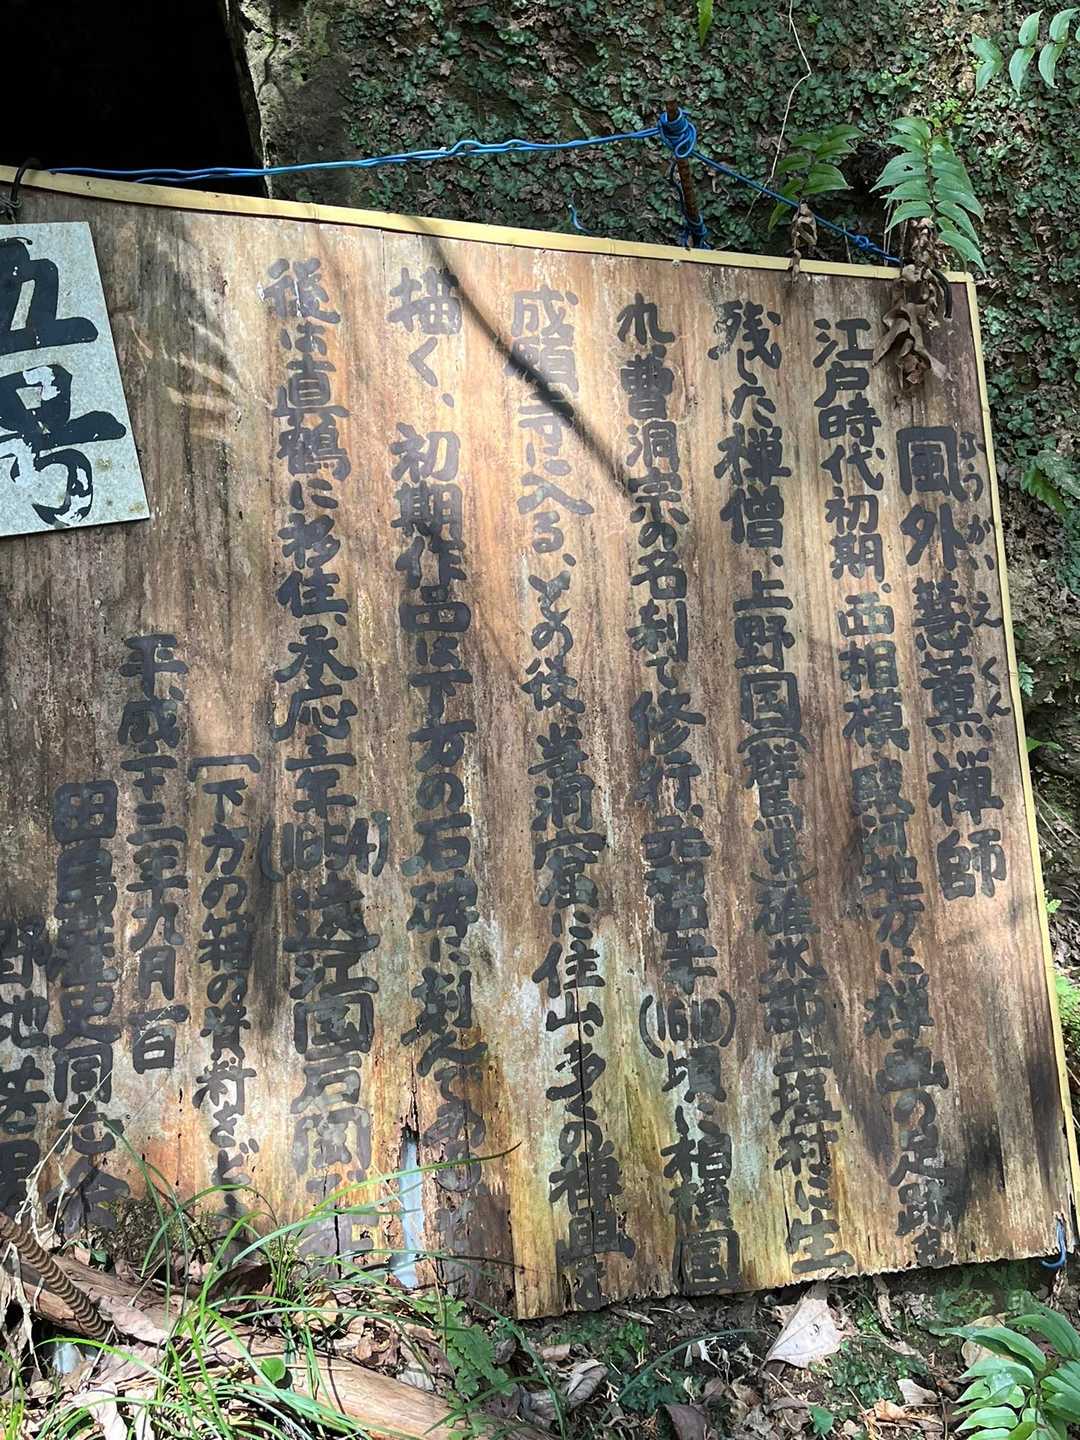 風外慧薫禅師
ふうがいえくん
江戸時代初期、西相模、駿河地方に禅画の足跡を
残した禅僧、上野国(群馬県)碓氷郡土塩村に生
れ曹洞宗の名刹で修行、元和四年(1618)頃に相模国
成願寺に入る、その後当洞窟に住山、多くの禅画を
描く、初期作品は下方の石碑に刻んで
後は真鶴に移住、承応三年(1654)遠江国石岡
[下方の箱の資料をど
平成十三年九月一日
田島歴史同志会
五号